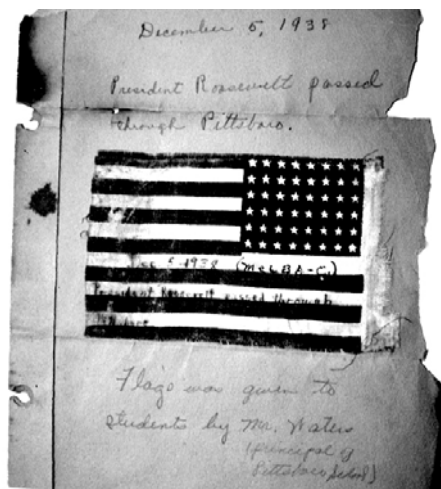 December 5, 1938
President Roosevelt passed
through Pittsboro.
Dec 5-1938 (MELBA-C.)
President Roosevelt passed through
Flags was given to
students by Mr. Waters
(principal of
Pittsboro School)